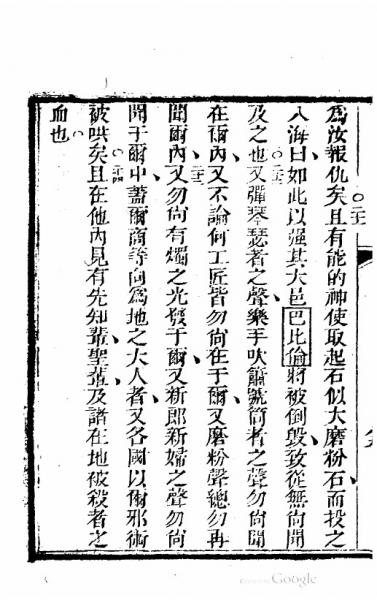 爲汝報仇矣○二十一且有能的神使取起石似大磨粉石而投之
入海曰如此以强其大邑巴比倫將被倒毀致從無尙聞
及之也○二十二又彈琴瑟者之聲樂手吹簫號筒者之聲勿尙聞
在爾內又不論何工匠皆勿尙在于爾又磨粉聲總勿再
聞爾內○二十三又勿尙有燭之光發于爾又新郎新婦之聲勿尙
聞于爾中蓋爾商等向爲地之大人者又各國以爾邪術
被哄矣○二十四且在他內見有先知輩聖輩及諸在地被殺者之
血也○
Google